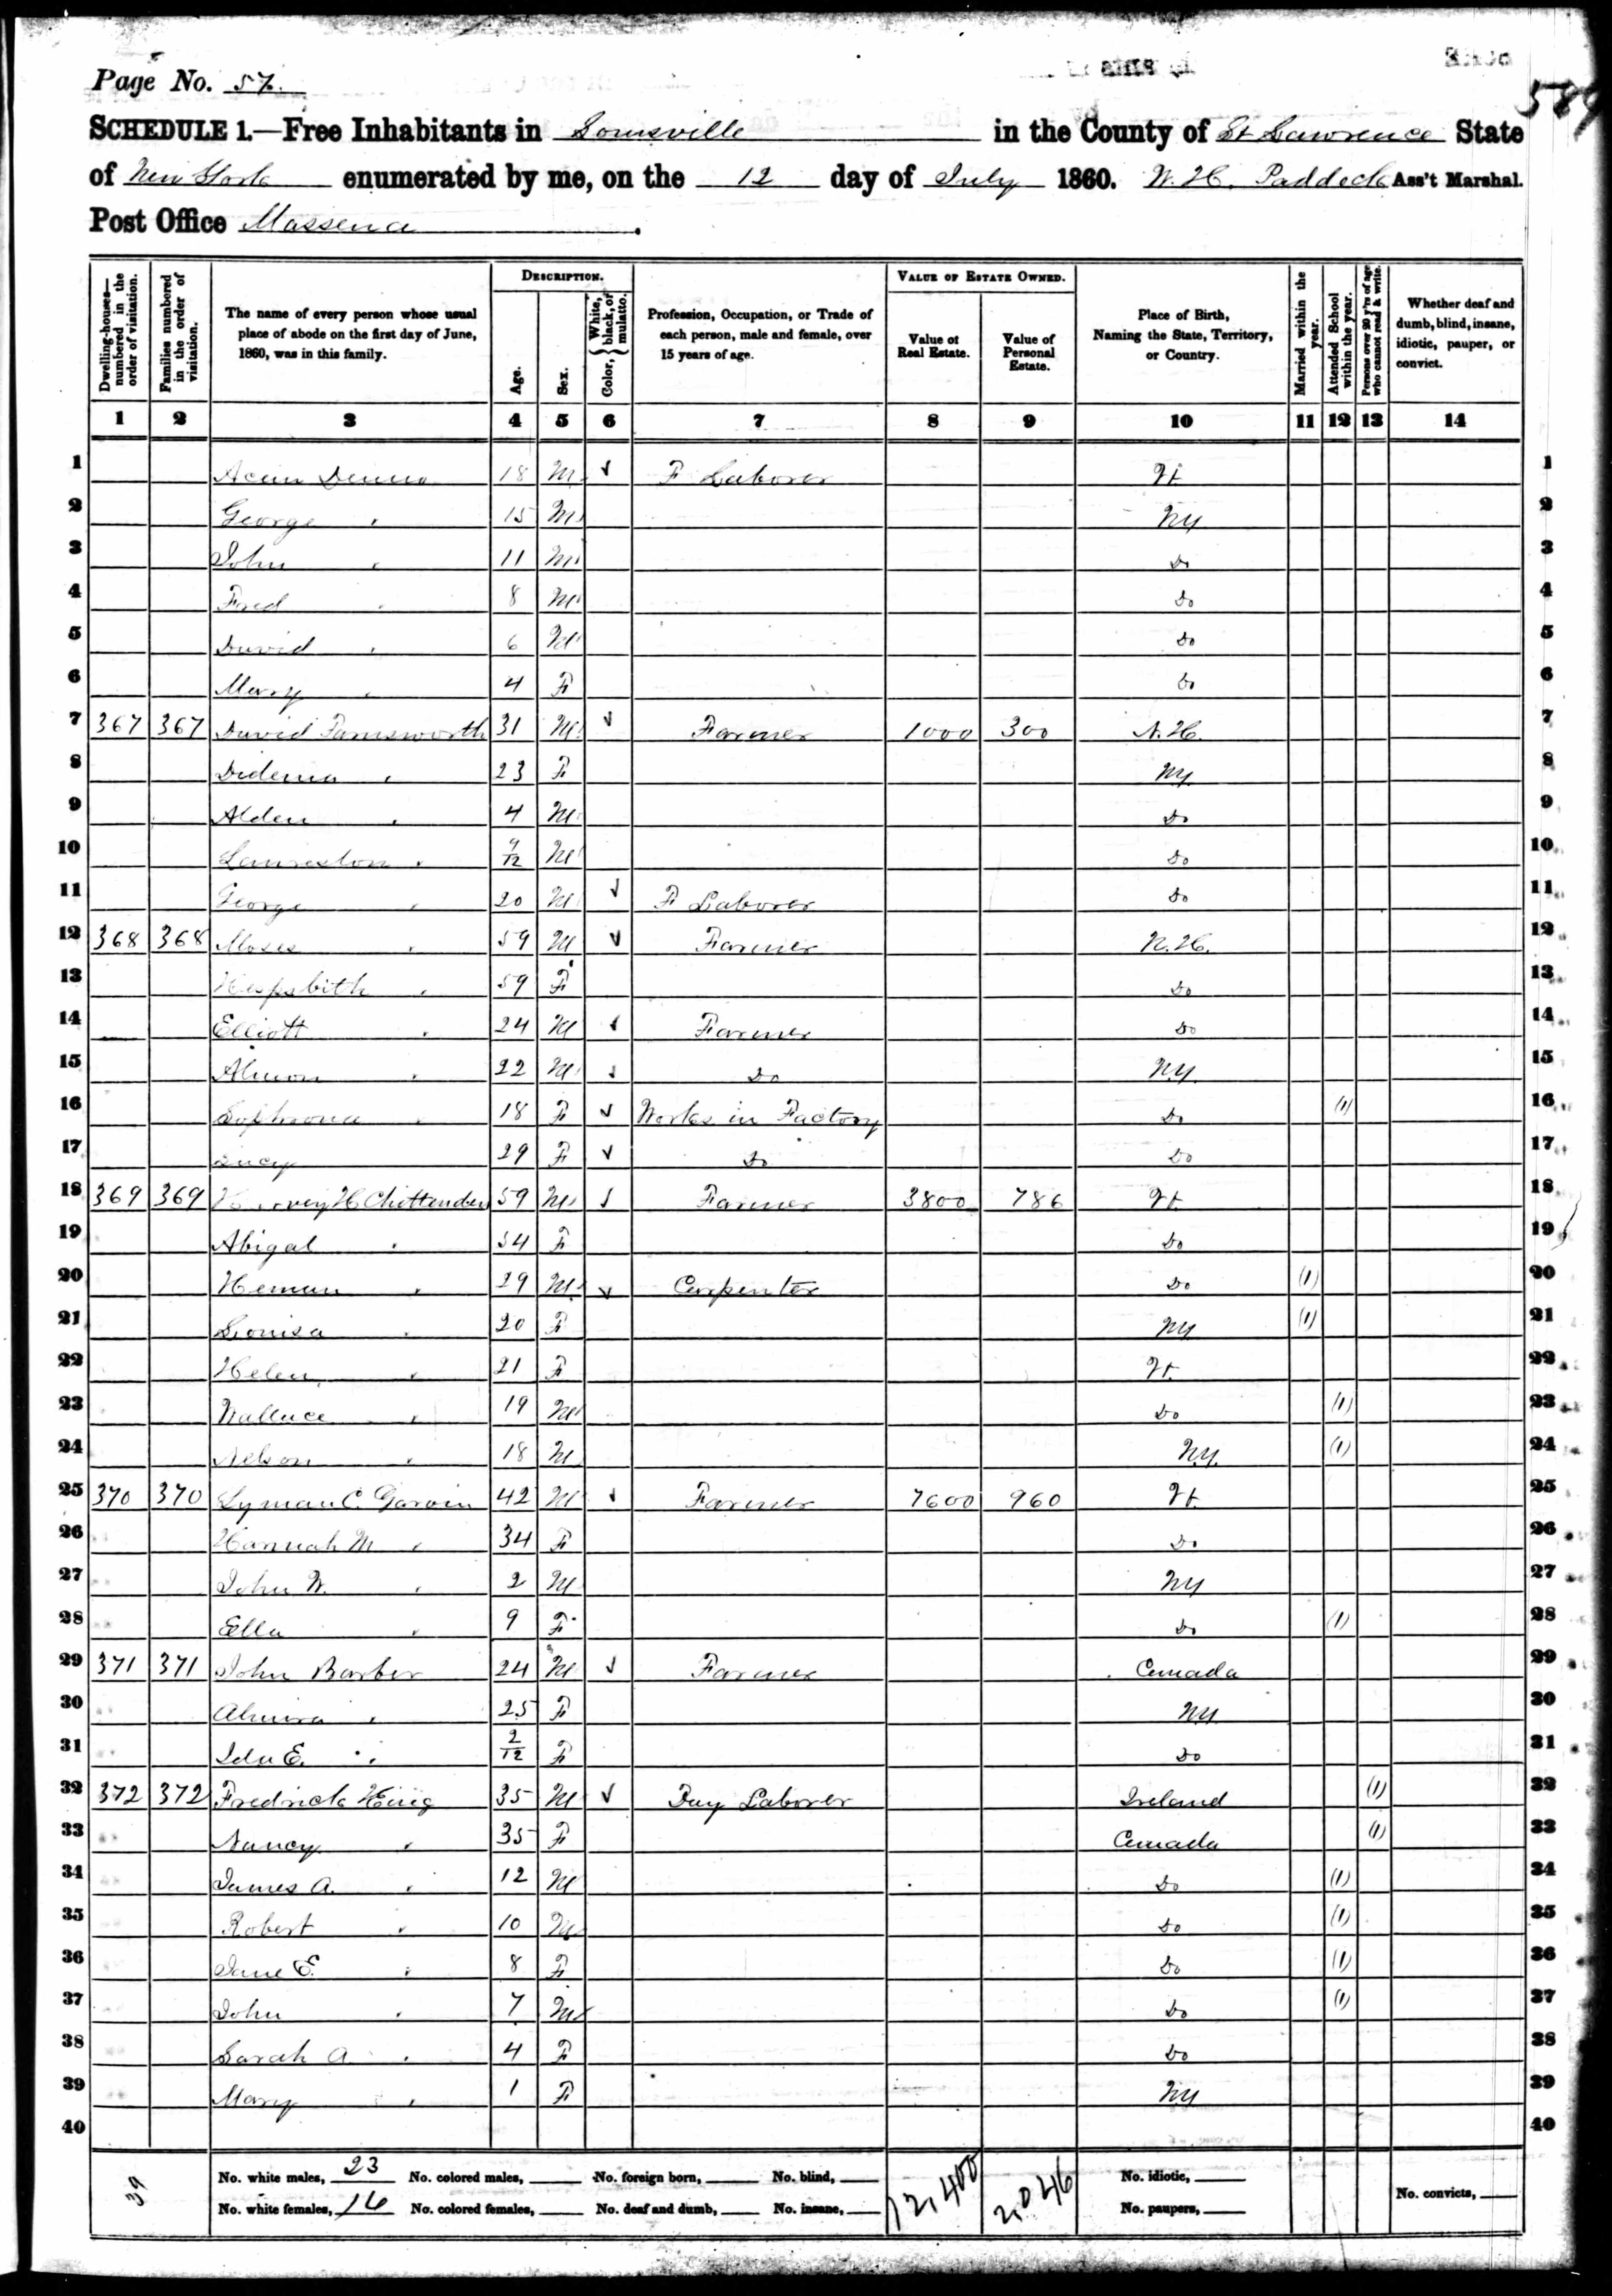 Page No. 57.
SCHEDULE 1.—Free Inhabitants in Louisville in the County of St Lawrence State
of New York enumerated by me, on the 12 day of July 1860. W. H. Paddock Ass't Marshal.
Post Office Massena.
Dwelling-houses—numbered in the order of visitation. Families numbered in the order of visitation. The name of every person whose usual place of abode on the first day of June, 1860, was in this family. DESCRIPTION. Age. Sex. Color, White, black, or mulatto. Profession, Occupation, or Trade of each person, male and female, over 15 years of age. VALUE OF ESTATE OWNED. Value of Real Estate. Value of Personal Estate. Place of Birth, Naming the State, Territory, or Country. Married within the year. Attended School within the year. Persons over 20 y'rs of age who cannot read & write. Whether deaf and dumb, blind, insane, idiotic, pauper, or convict.
1 2 3 4 5 6 7 8 9 10 11 12 13 14
1 18 M F Laborer Vt 1
2 George " 15 M NY 2
3 John " 11 M Do 3
4 Fred " 8 M Do 4
5 David " 6 M Do 5
6 Mary " 4 F Do 6
7 367 367 David Farnsworth 31 M Farmer 1000 300 N.H. 7
8 Didema " 23 F NY 8
9 Alden " 4 M Do 9
10 Laureston " 9/12 M Do 10
11 George " 20 M F Laborer Do 11
12 368 368 Moses " 59 M Farmer N.H. 12
13 Hepsbith " 59 F Do 13
14 Elliott " 24 M Farmer Do 14
15 Almon " 22 M Do N.Y. 15
16 Sophrona " 18 F Works in Factory Do (1) 16
17 Lucy 29 F Do Do 17
18 369 369 Harvey H Chittenden 59 M Farmer 3800 786 Vt. 18
19 Abigal " 54 F Do 19
20 Heman " 29 M Carpenter Do (1) 20
21 Louisa " 20 F NY (1) 21
22 Helen " 21 F Vt. 22
23 Wallace " 19 M Do (1) 23
24 Nelson " 18 M N.Y. (1) 24
25 370 370 Lyman C. Garvin 42 M Farmer 7600 960 Vt 25
26 Hannah M " 34 F Do 26
27 John W. " 2 M NY 27
28 Ella " 9 F Do (1) 28
29 371 371 John Barber 24 M Farmer Canada 29
30 Almira " 25 F NY 30
31 Ida E. " 2/12 F Do 31
32 372 372 Fredrick 35 M Day Laborer Ireland (1) 32
33 Nancy " 35 F Canada (1) 33
34 James A. " 12 M Do (1) 34
35 Robert " 10 M Do (1) 35
36 Jane E. " 8 F Do (1) 36
37 John " 7 M Do (1) 37
38 Sarah A " 4 F Do 38
39 Mary " 1 F NY 39
40 40
39 No. white males, 23 No. colored males, No. foreign born, No. blind, 12,400 2046 No. idiotic,
No. white females, 16 No. colored females, No. deaf and dumb, No. insane, No. paupers, No. convicts,